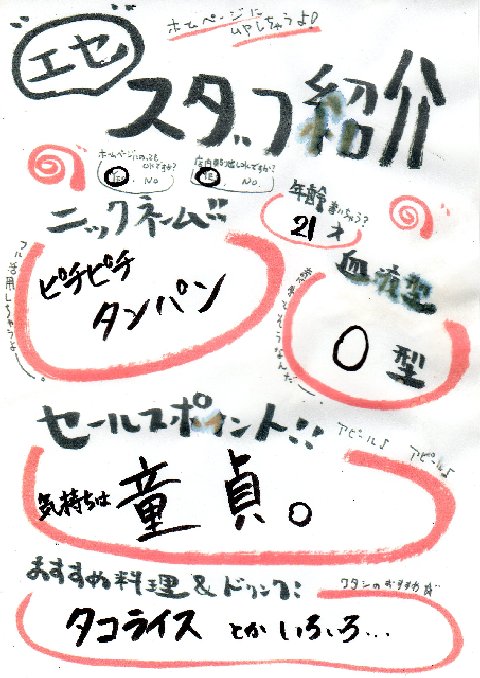 ホームページに
UPしちゃうよ♪
エセ
スタッフ紹介
ホームページにのっても
いいですか?
YES. NO
店内貼り出しいいですか?
YES. NO.
ニックネーム!!
年齢
21才
フル活用しちゃうよ〜。
ピチピチ
タンパン
血液型
O型
セールスポイント!!
アピール♪ アピール♪
気持ちは 童貞。
おすすめ料理&ドリンク!
ワタシのおすすめ
タコライス とかいろいろ...